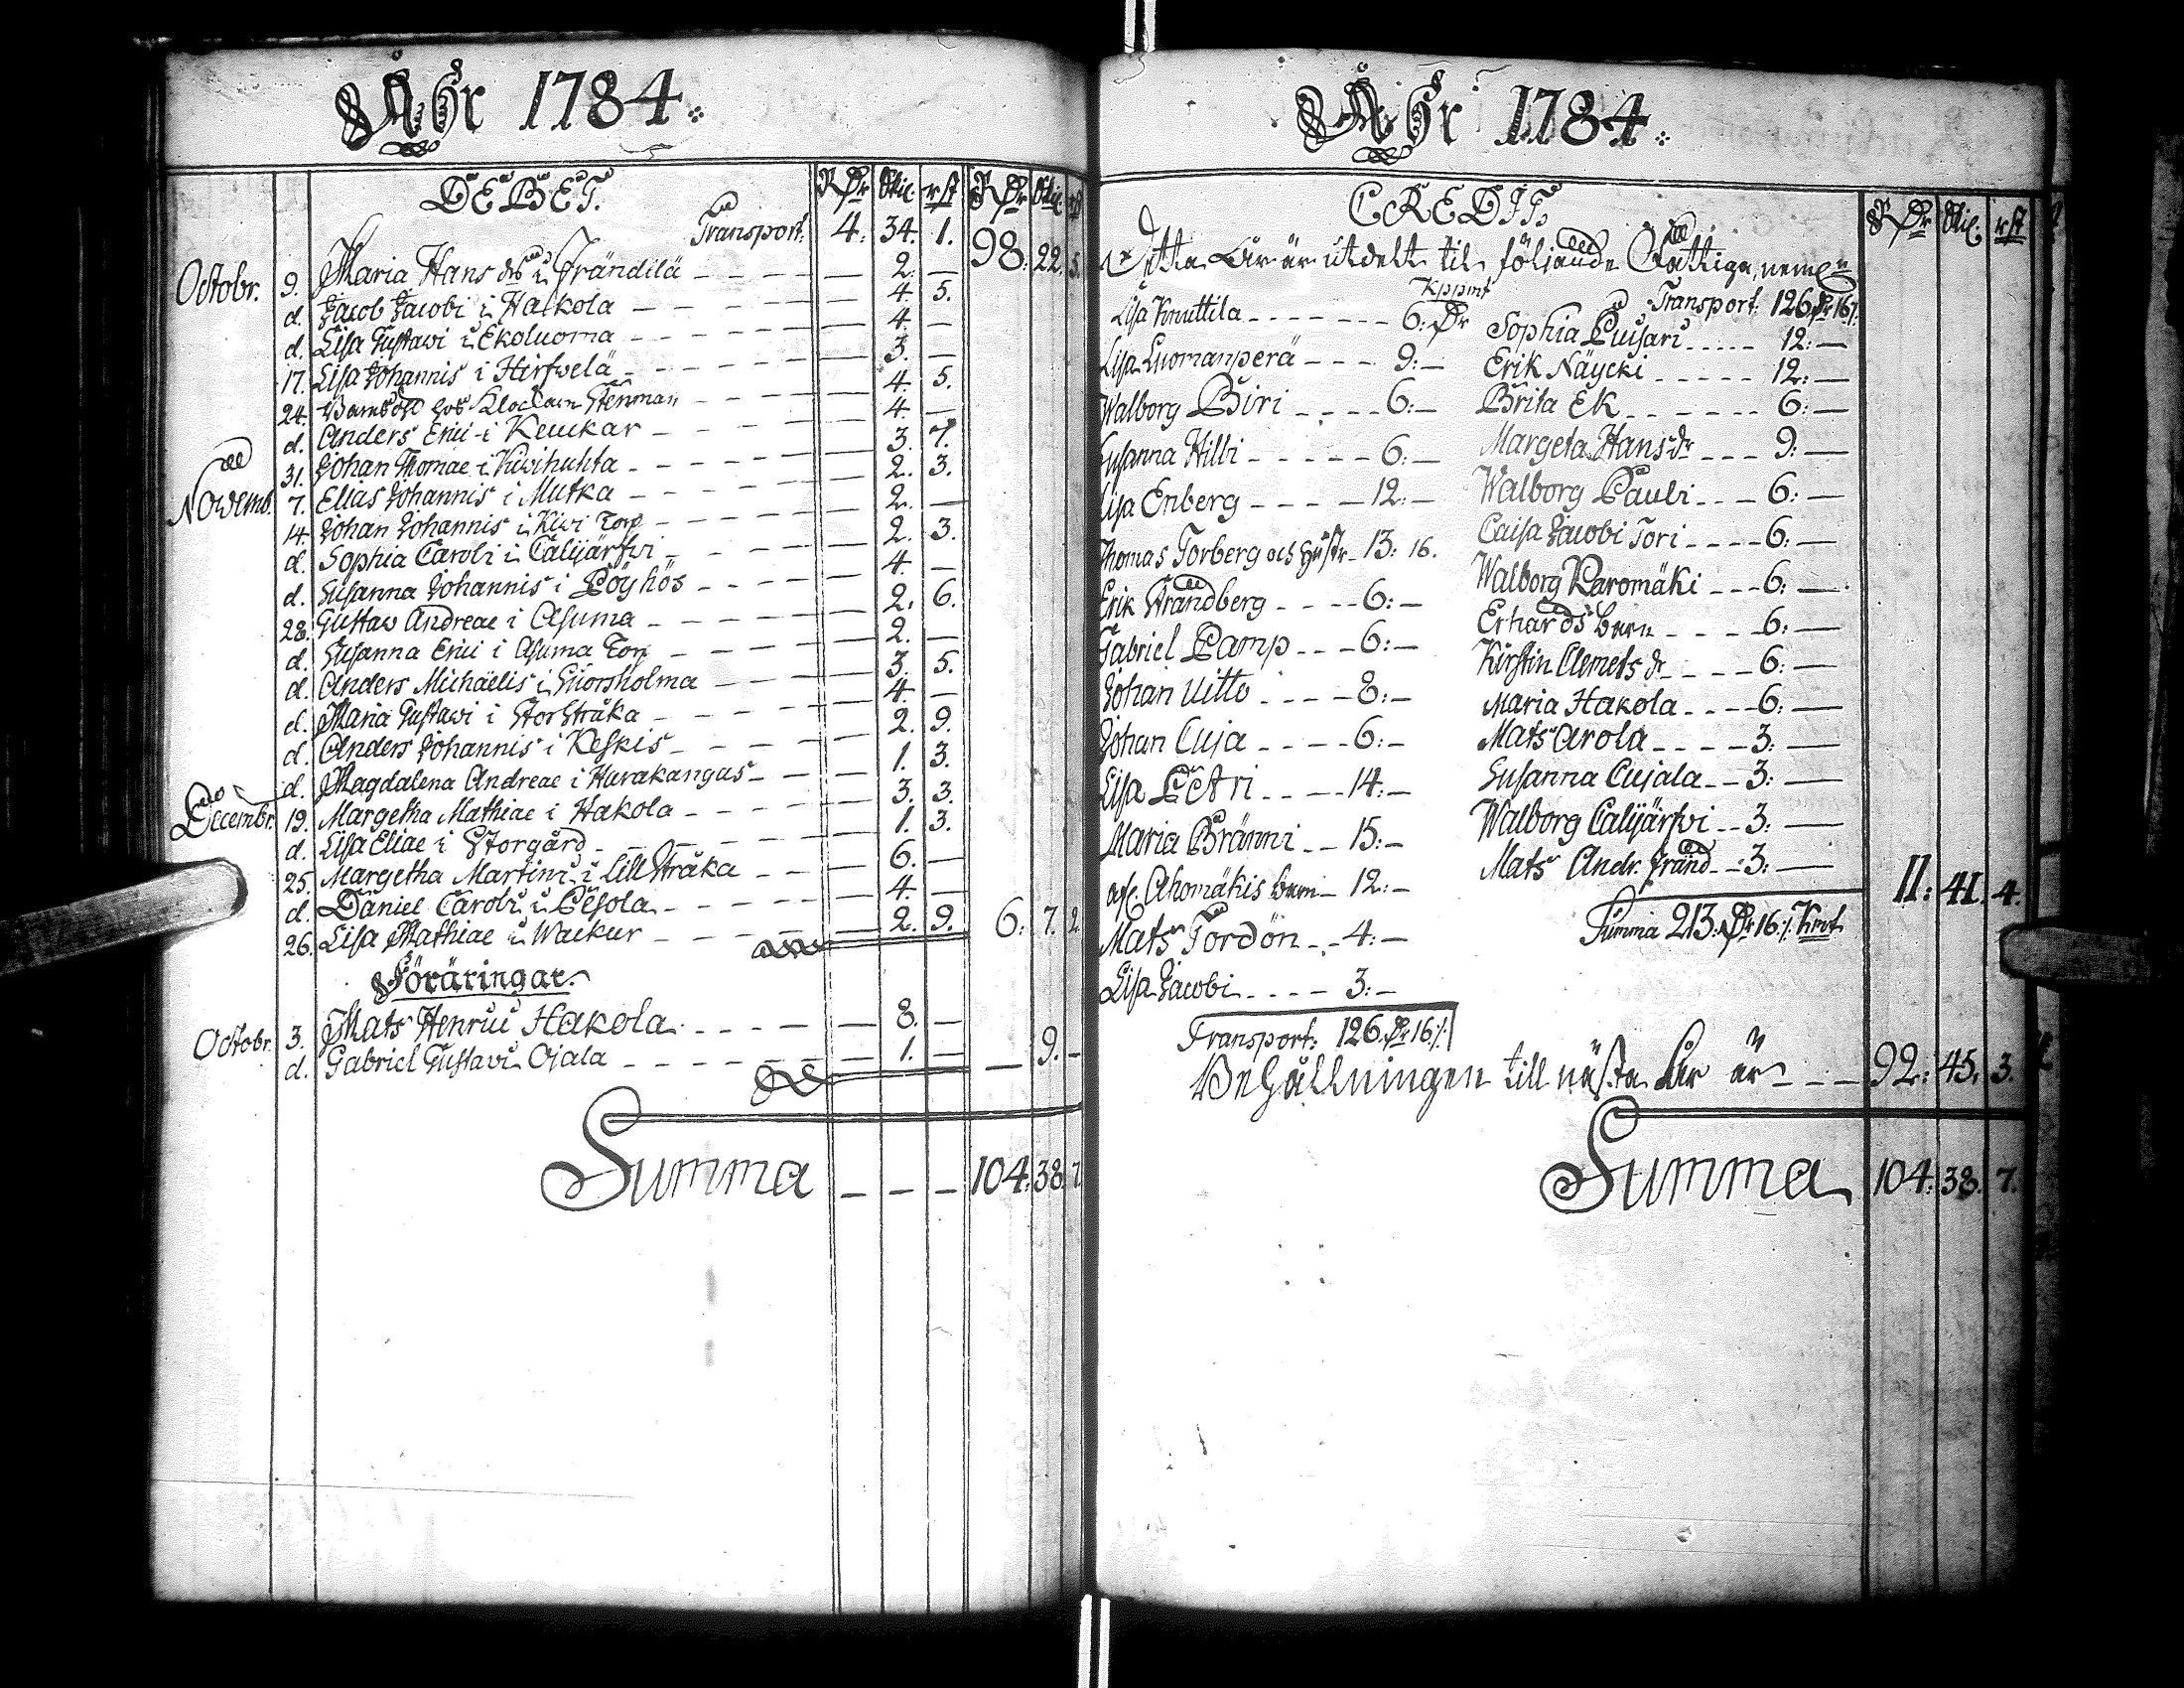 Åhr 1784.
DEBET. RDr Skil. rst RDr Skil. rst
Transport: 4. 34. 1. 98. 22. 5.
Octobr. 9. Maria Hans dr i Frändilä — 2. —
d. Jacob Jacobi i Hakola — 4. 5.
d. Lisa Gustavi i Ekoluoma — 4. —
17. Lisa Johannis i Hirfwelä — 3. —
24. hos Klockarn Stenman — 4. 5.
d. Anders Erici i Keuckar — 4. —
31. Johan Thomae i Kiwihuhta — 3. 7.
Novemb. 7. Elias Johannis i Mutka — 2. 3.
14. Johan Johannis i Kiwi Torp — 2. —
d. Sophia Caroli i Calijärfvi — 2. 3.
d. Susanna Johannis i Pöyhös — 4. —
28. Gustaw Andreae i Asuma — 2. 6.
d. Susanna Erici i Asuma Torp — 2. —
d. Anders Michaelis i — 3. 5.
d. Maria Gustavi i Storstråka — 4. —
d. Anders Johannis i Keskis — 2. 9.
d. Magdalena Andreae i Harakangas — 1. 3.
Decembr. 19. Margetha Mathiae i Hakola — 3. 3.
d. Lisa Eliae i Storgård — 1. 3.
25. Margetha Martini i Lillstråka — 6. —
d. Daniel Caroli i Pesola — 4. —
26. Lisa Mathiae i Waikur — 2. 9. 6. 7. 2
Föräringar.
Octobr. 3. Mats Henrici Hakola — 8. —
d. Gabriel Gustavi Ojala — 1. — — 9. —
Summa — — — 104. 38. 7
Åhr 1784.
CREDIT. RDr Skil. rst
Detta År är utdelt til följande Fattiga, neml:n
Kppmt Transport: 126. Dr 16 /.
Lisa Knuttila 6: Dr Sophia Pusari 12: —
Lisa Luomanperä 9: — Erik Näycki 12: —
Walborg Biri 6: — Brita Ek 6: —
Susanna Hilli 6: — Margeta Hansdr 9: —
Lisa Enberg 12: — Walborg Pauli 6: —
Thomas Torberg och Hustr 13: 16. Caisa Jacobi Tori 6: —
Erik Strandberg 6: — Walborg Paromäki 6: —
Gabriel Pamp 6: — Erhards barn 6: —
Johan Uitto 8: — Kirstin Clemets dr 6: —
Johan Cuja 6: — Maria Hakola 6: —
Lisa Petri 14: — Mats Arola 3: —
Maria Bränni 15: — Susanna Cujala 3: —
Ahomäkis barn 12: — Walborg Calijärfvi 3: —
Mats Tordön 4: — Mats Andr. Fränd 3: — 11: 41. 4.
Lisa Jacobi 3: — Summa 213: Dr 16 /. Kmt
Transport: 126. Dr 16 /.
Behållningen till nästa År är — 92: 45. 3.
Summa 104: 38. 7.